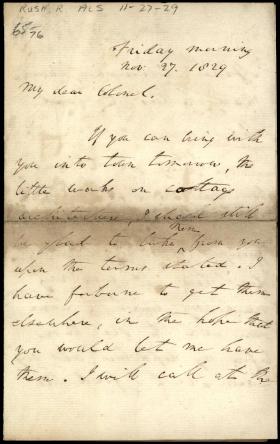 RUSH, R. ALS 11-27-29
Friday morning
Nov. 27. 1829
My dear Colonel.
If you can bring with
you into town tomorrow, the
little works on cottage
architecture, I should still
be glad to take them from you
upon the terms stated. I
have forborne to get them
elsewhere, in the hope that
you would let me have
them. I will call at the